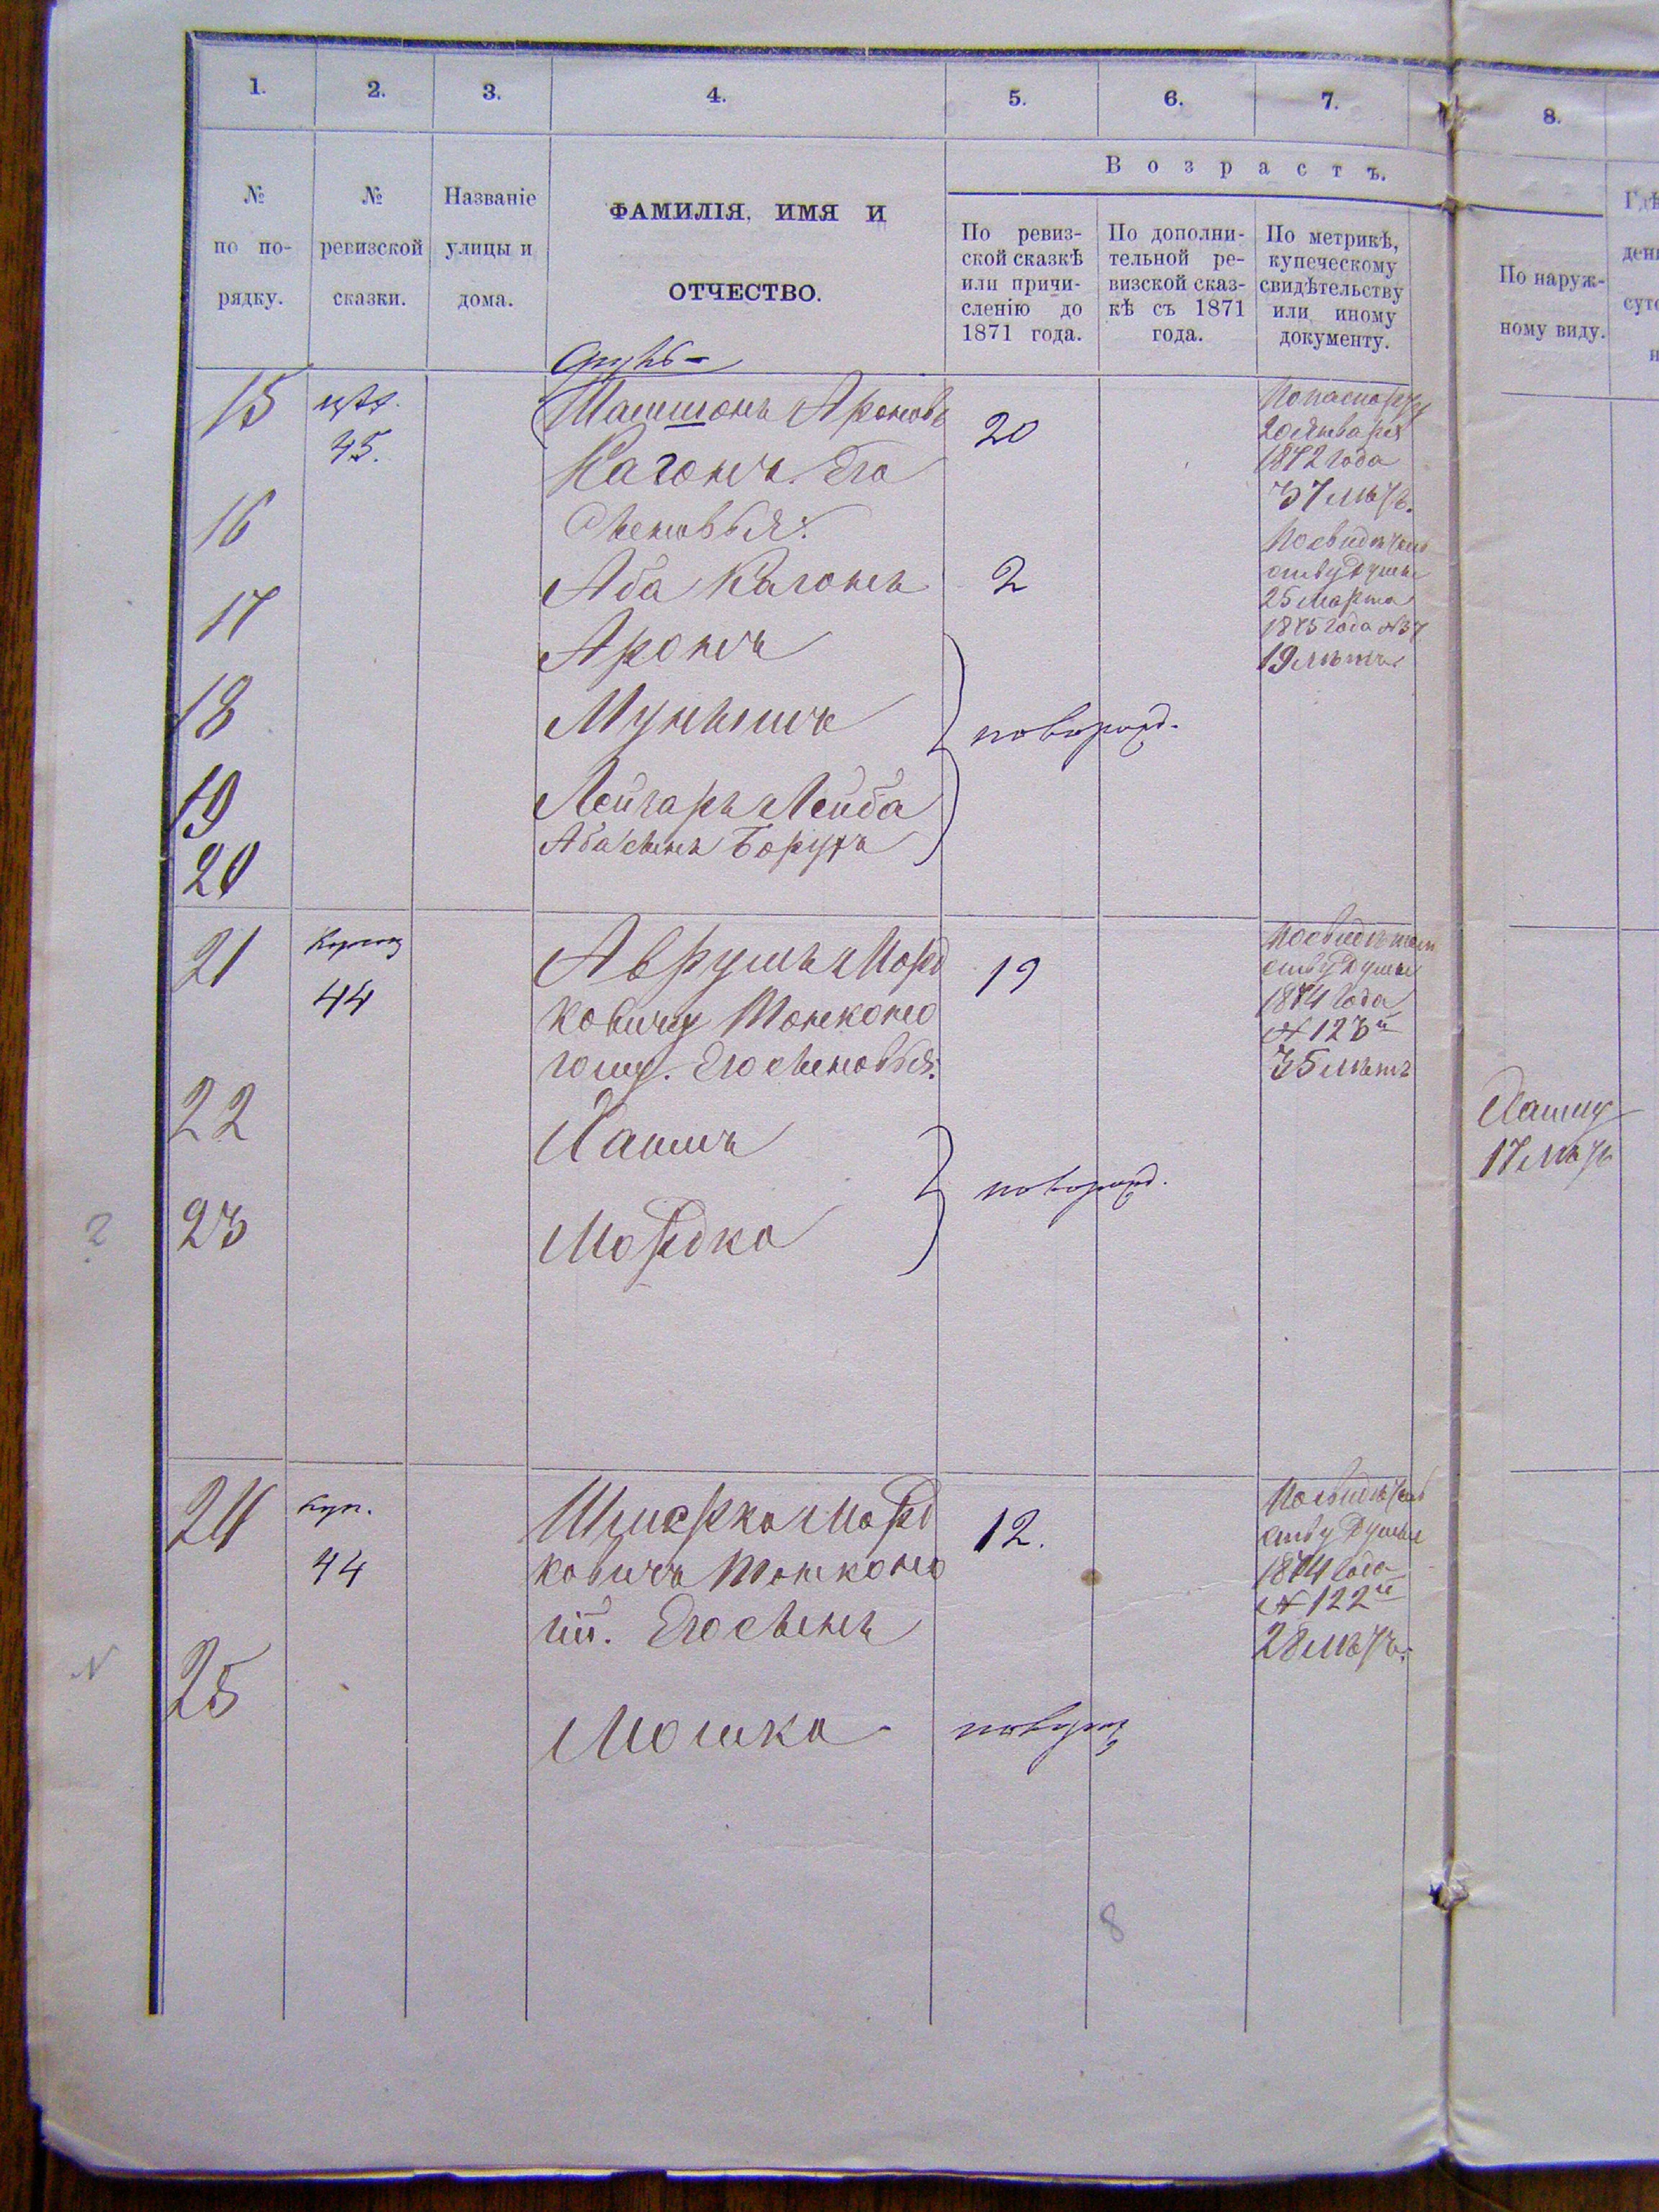 1.
2.
3.
4.
5.
6.
7.
8.
Возрастъ.
№
по по-
рядку.
№
ревизской
сказки.
Названіе
улицы и
дома.
ФАМИЛІЯ, ИМЯ И
ОТЧЕСТВО.
По ревиз-
ской сказкѣ
или причи-
сленію до
1871 года.
По дополни-
тельной ре-
визской сказ-
кѣ съ 1871
года.
По метрикѣ,
купеческому
свидѣтельству
или иному
документу.
По наруж-
ному виду.
Гдѣ
ден
сут
н
15
45.
Шамшонъ Ароновъ
Кагонъ. Его
сыновья:
20
По паспорту
20 Января
1872 года
37 лѣтъ.
16
Аба Кагонъ
2
По свидѣтель
ству Думы
25 Марта
1875 года №37
19 лѣтъ.
17
Аронъ
18
Мунышъ
новорожд.
19
Лейзаръ Лейба
20
Аба сынъ Борухъ
21
44
Аврумъ Морд
ковичу Тонконо
гому. Его сыновья:
19
По свидѣтель
ству Думы
1874 года
№ 123й
35 лѣтъ
22
Хаимъ
Хаиму
17 лѣтъ
новорожд.
? 23
Мордко
24
куп.
44
Шмерко Морд
ковичъ Тонконо
гій. Его сынъ
12.
По свидѣтель
ству Думы
1874 года
№ 122й
28 лѣтъ.
N 25
Мошко
новорож
8